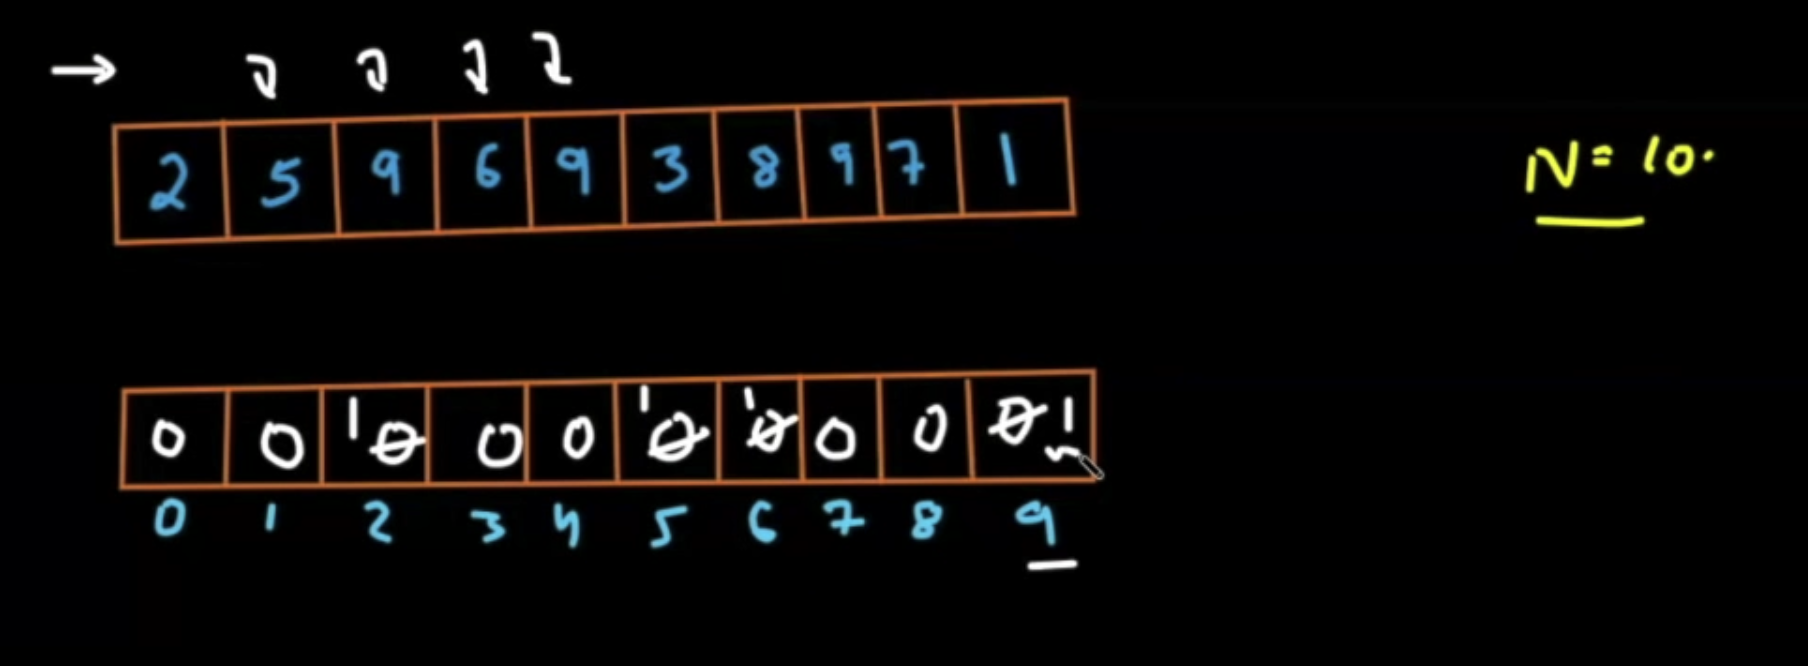 →
2 5 9 6 9 3 8 9 7 1
N = 10.
0 0 1 0 0 0 1 0 1 0 0 0 0 1
0 1 2 3 4 5 6 7 8 9